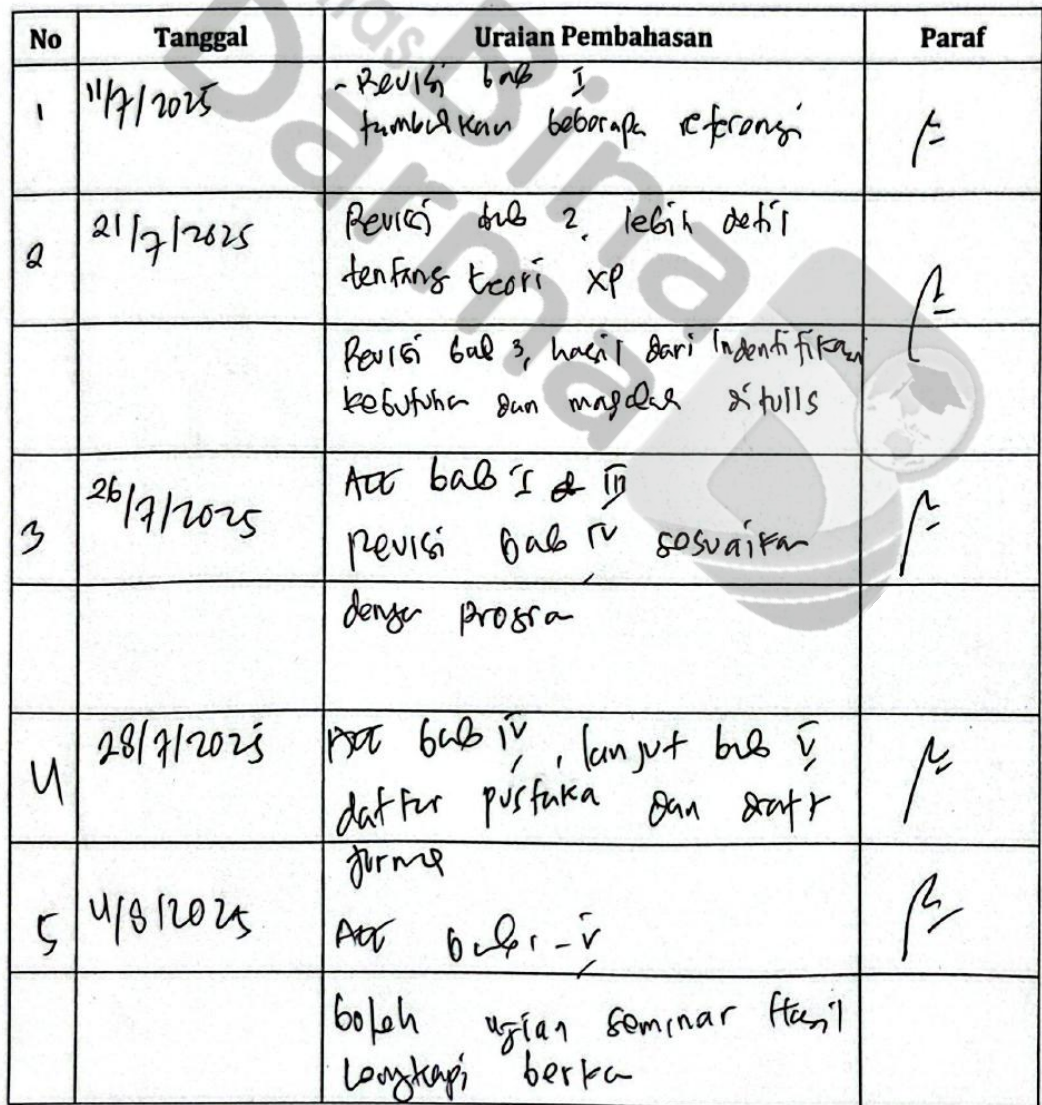 No Tanggal Uraian Pembahasan Paraf
1 11/7/2025 - Revisi bab I
tambahkan beberapa referensi
2 21/7/2025 Revisi bab 2, lebih detil
tentang teori XP
Revisi bab 3, hasil dari Indentifikasi
kebutuhan dan masalah ditulis
3 26/7/2025 Acc bab I & III
Revisi bab IV sesuaikan
dengan program
4 28/7/2025 Acc bab IV, lanjut bab V,
daftar pustaka dan draft
jurnal
5 4/8/2025 Acc bab I - V
boleh ujian seminar Hasil
Lengkapi berkas
Bina
Darma